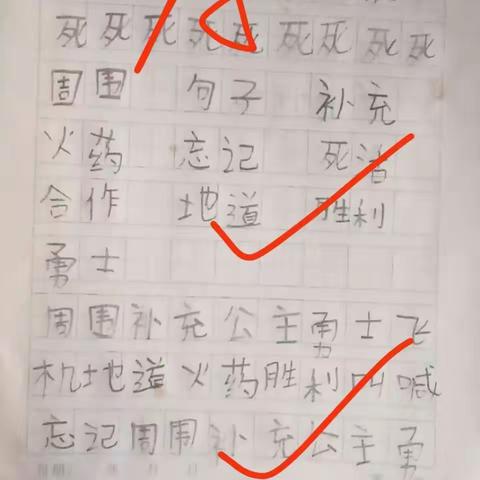 死死死死死死死死死
周围 句子 补充
火药 忘记 死活
合作 地道 胜利
勇士
周围补充公主勇士飞
机地道火药胜利叫喊
忘记周围补充公主勇